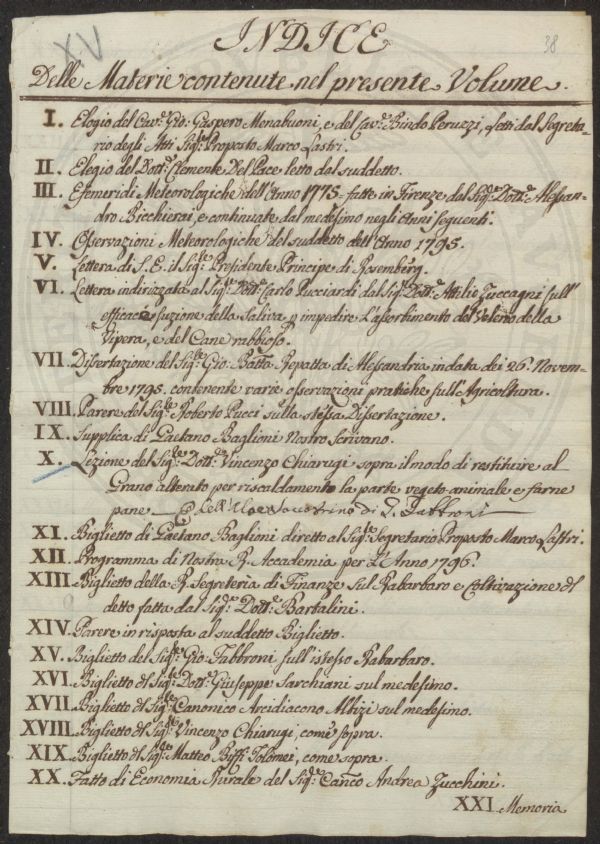 XV
38
INDICE
Delle Materie contenute nel presente Volume.
I. Elogio del Cav.e Gio: Gaspero Menabuoni, e del Cav.e Bindo Peruzzi, fatti dal Segreta-
rio degli Atti Sig.re Proposto Marco Lastri.
II. Elogio del Dott.e Clemente Del Pace letto dal suddetto.
III. Efemeridi Meteorologiche dell'Anno 1775 fatte in Firenze dal Sig.re Dott.e Alessan-
dro Bicchierai, e continuate dal medesimo negli Anni seguenti.
IV. Osservazioni Meteorologiche del suddetto dell'Anno 1795.
V. Lettera di S. E. il Sig.re Presidente Principe di Rosemberg.
VI. Lettera indirizzata al Sig.re Dott.e Carlo Lucciardi dal Sig.re Dott.e Attilio Zuccagni sull'
efficace fuzione della Saliva p impedire l'assorbimento del Veleno della
Vipera, e del Cane rabbioso.
VII. Dissertazione del Sig.re Gio: Batta Repatta di Alessandria in data dei 26. Novem-
bre 1795. contenente varie osservazioni pratiche sull'Agricoltura.
VIII. Parere del Sig.re Roberto Pucci sulla stessa Dissertazione.
IX. Supplica di Gaetano Baglioni Nostro Scrivano.
X. Lezione del Sig.re Dott.e Vincenzo Chiarugi sopra il modo di restituire al
Grano alterato per riscaldamento la parte vegeto-animale e farne
pane — di G. Fabbroni
XI. Biglietto di Gaetano Baglioni diretto al Sig.re Segretario Proposto Marco Lastri.
XII. Programma di Nostra R. Accademia per l'Anno 1796.
XIII. Biglietto della R. Segreteria di Finanze sul Rabarbaro e Coltivazione di
detto fatta dal Sig.re Dott.e Bartalini.
XIV. Parere in risposta al suddetto Biglietto.
XV. Biglietto del Sig.re Gio: Fabbroni sull'istesso Rabarbaro.
XVI. Biglietto dl Sig.re Dott.e Giuseppe Sarchiani sul medesimo.
XVII. Biglietto dl Sig.re Canonico Arcidiacono Albizi sul medesimo.
XVIII. Biglietto dl Sig.re Vincenzo Chiarugi, come sopra.
XIX. Biglietto dl Sig.re Matteo Biffi Tolomei, come sopra.
XX. Fatto di Economia Rurale del Sig.re Canco Andrea Zucchini.
XXI. Memoria